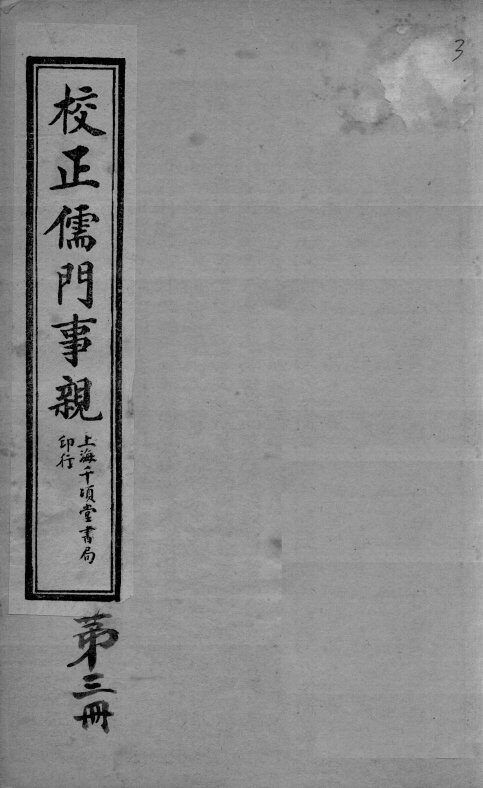 3
校正儒門事親
上海千頃堂書局
印行
第三冊